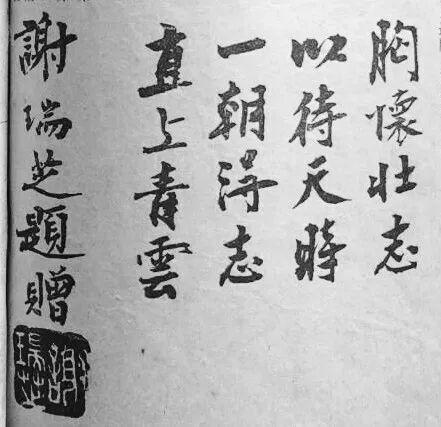 胸懷壯志
以待天時
一朝得志
直上青雲
謝瑞芝題贈